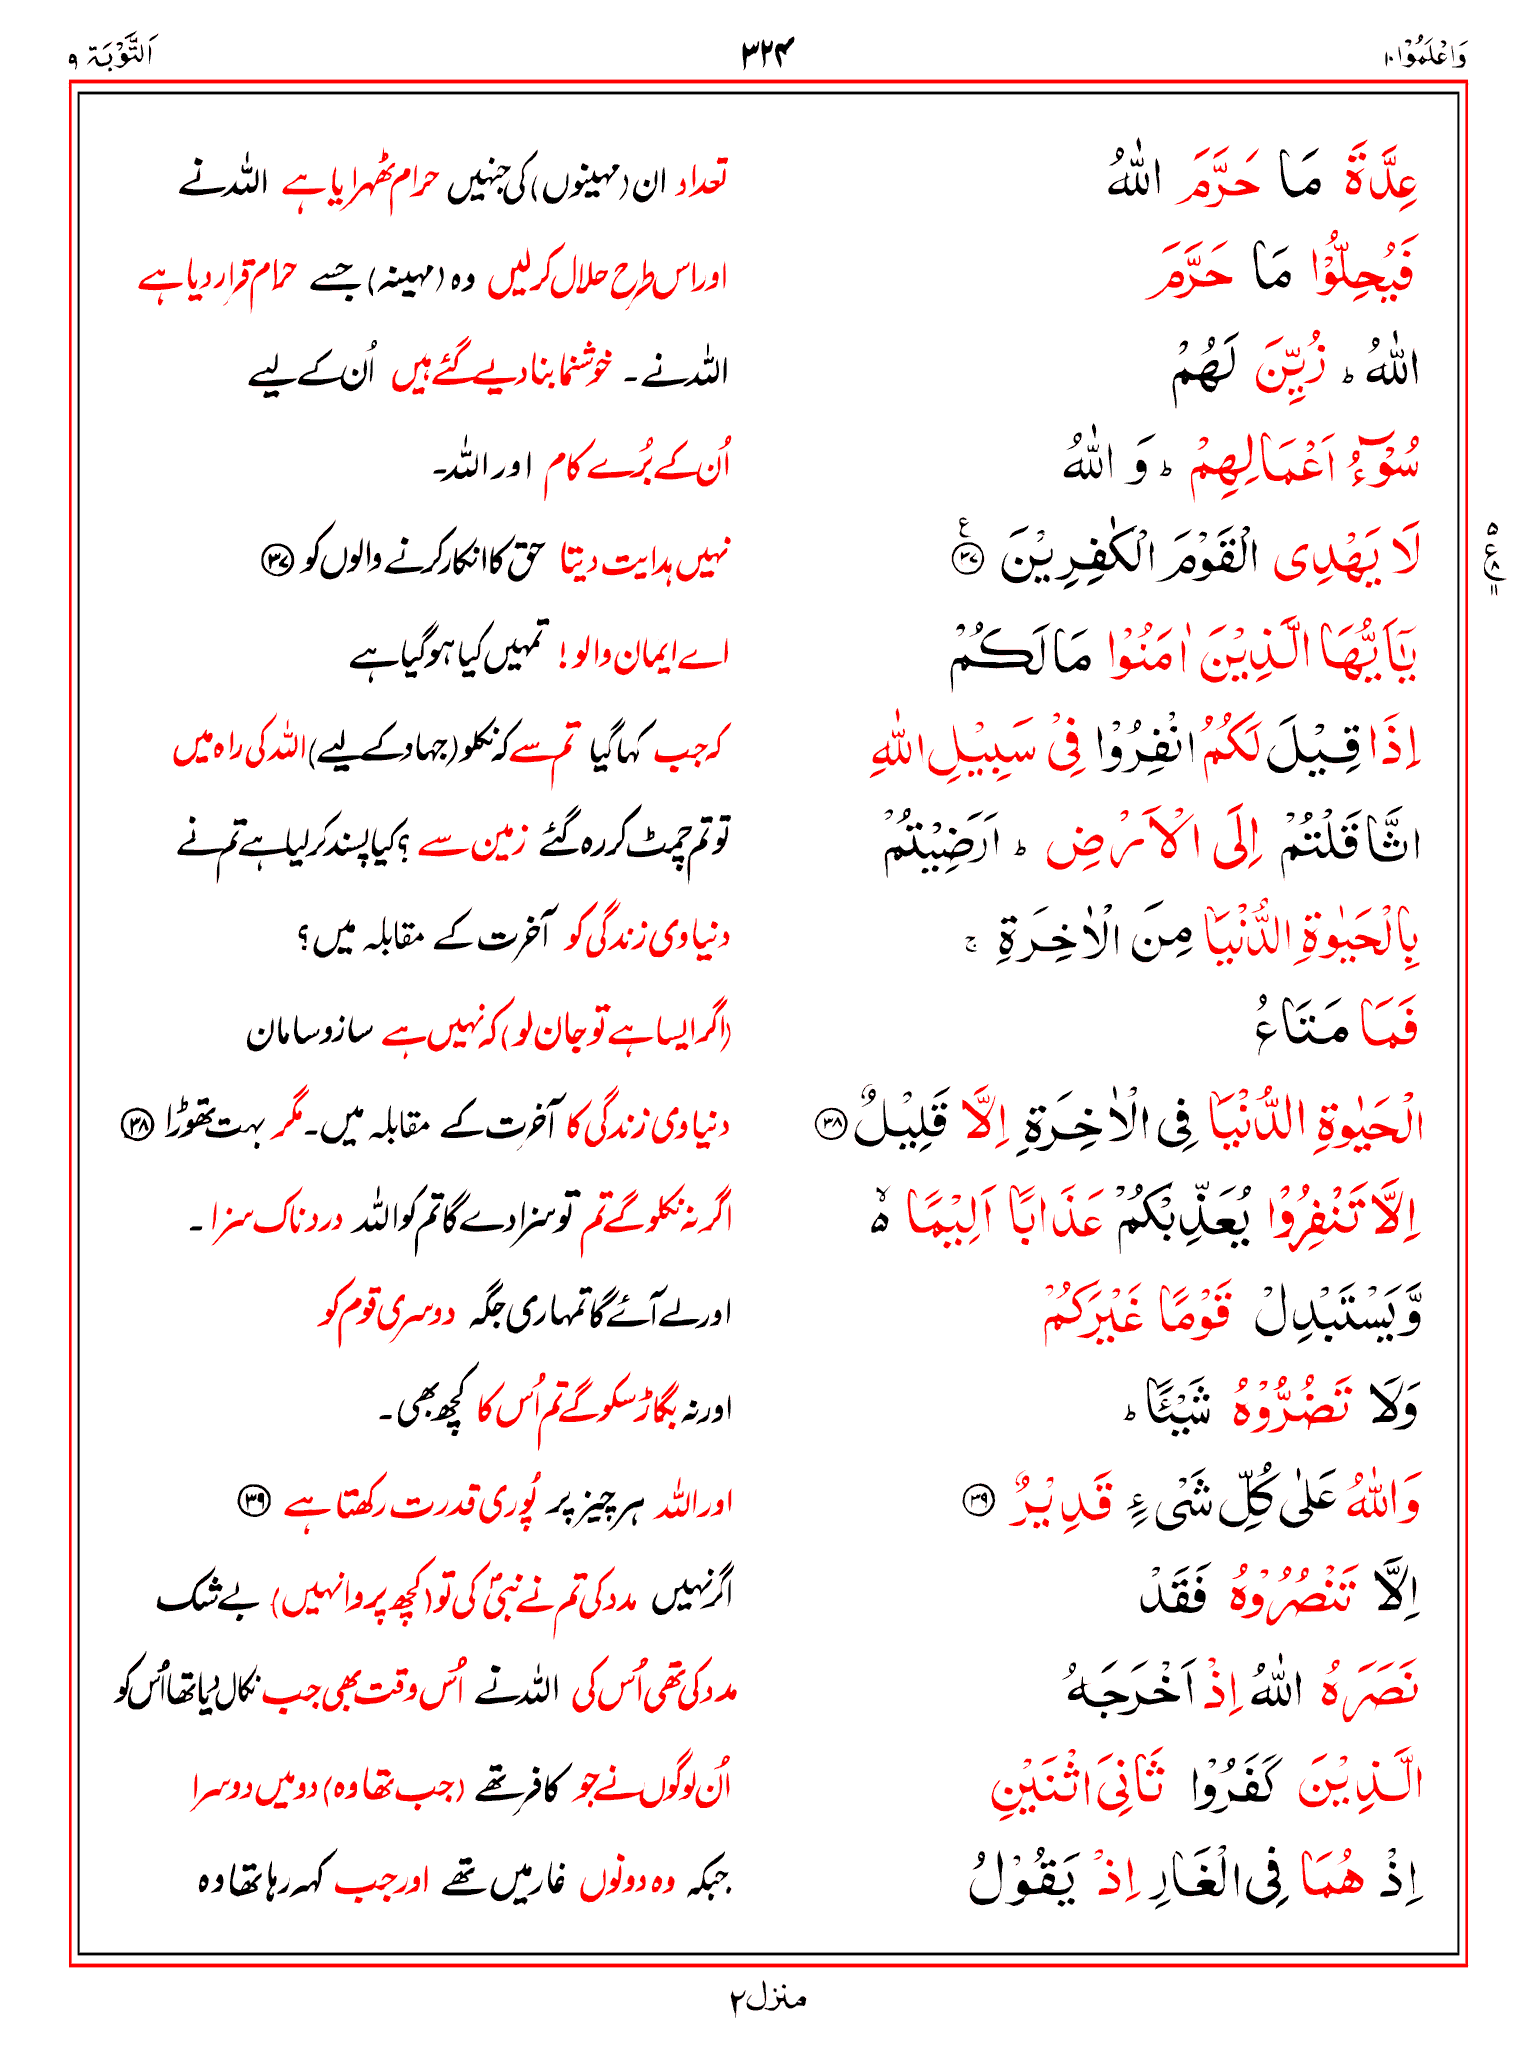 وَاعْلَمُوْا۱۰ ۳۲۴ اَلتَّوْبَة ۹
عِدَّةَ مَا حَرَّمَ اللّٰهُ تعداد ان (مہینوں) کی جنہیں حرام ٹھہرایا ہے اللہ نے
فَيُحِلُّوْا مَا حَرَّمَ اور اس طرح حلال کرلیں وہ (مہینہ) جسے حرام قرار دیا ہے
اللّٰهُ ؕ زُيِّنَ لَهُمْ اللہ نے ۔ خوشنما بنا دیے گئے ہیں اُن کے لیے
سُوْٓءُ اَعْمَالِهِمْ ؕ وَ اللّٰهُ اُن کے بُرے کام اور اللہ۔
لَا يَهْدِى الْقَوْمَ الْكٰفِرِيْنَ ۳۷ نہیں ہدایت دیتا حق کا انکار کرنے والوں کو ۳۷
يٰٓاَيُّهَا الَّذِيْنَ اٰمَنُوْا مَا لَكُمْ اے ایمان والو! تمہیں کیا ہوگیا ہے
اِذَا قِيْلَ لَكُمُ انْفِرُوْا فِىْ سَبِيْلِ اللّٰهِ کہ جب کہا گیا تم سے کہ نکلو (جہاد کے لیے) اللہ کی راہ میں
اثَّاقَلْتُمْ اِلَى الْاَرْضِ ؕ اَرَضِيْتُمْ تو تم چمٹ کر رہ گئے زمین سے ؟ کیا پسند کرلیا ہے تم نے
بِالْحَيٰوةِ الدُّنْيَا مِنَ الْاٰخِرَةِ ۚ دنیاوی زندگی کو آخرت کے مقابلہ میں؟
فَمَا مَتَاعُ (اگر ایسا ہے تو جان لو) کہ نہیں ہے ساز و سامان
الْحَيٰوةِ الدُّنْيَا فِى الْاٰخِرَةِ اِلَّا قَلِيْلٌ ۳۸ دنیاوی زندگی کا آخرت کے مقابلہ میں۔ مگر بہت تھوڑا ۳۸
اِلَّا تَنْفِرُوْا يُعَذِّبْكُمْ عَذَابًا اَلِيْمًا ۵ۙ اگر نہ نکلو گے تم تو سزا دے گا تم کو اللہ دردناک سزا ۔
وَّيَسْتَبْدِلْ قَوْمًا غَيْرَكُمْ اور لے آئے گا تمہاری جگہ دوسری قوم کو
وَلَا تَضُرُّوْهُ شَيْئًا ؕ اور نہ بگاڑ سکو گے تم اُس کا کچھ بھی ۔
وَاللّٰهُ عَلٰى كُلِّ شَىْءٍ قَدِيْرٌ ۳۹ اور اللہ ہر چیز پر پُوری قدرت رکھتا ہے ۳۹
اِلَّا تَنْصُرُوْهُ فَقَدْ اگر نہیں مدد کی تم نے نبیؐ کی تو (کچھ پروا نہیں) بے شک
نَصَرَهُ اللّٰهُ اِذْ اَخْرَجَهُ مدد کی تھی اُس کی اللہ نے اُس وقت بھی جب نکال دیا تھا اُس کو
الَّذِيْنَ كَفَرُوْا ثَانِىَ اثْنَيْنِ اُن لوگوں نے جو کافر تھے (جب تھا وہ) دو میں دوسرا
اِذْ هُمَا فِى الْغَارِ اِذْ يَقُوْلُ جبکہ وہ دونوں غار میں تھے اور جب کہہ رہا تھا وہ
۵ ع ۸ ۱۱
منزل۲